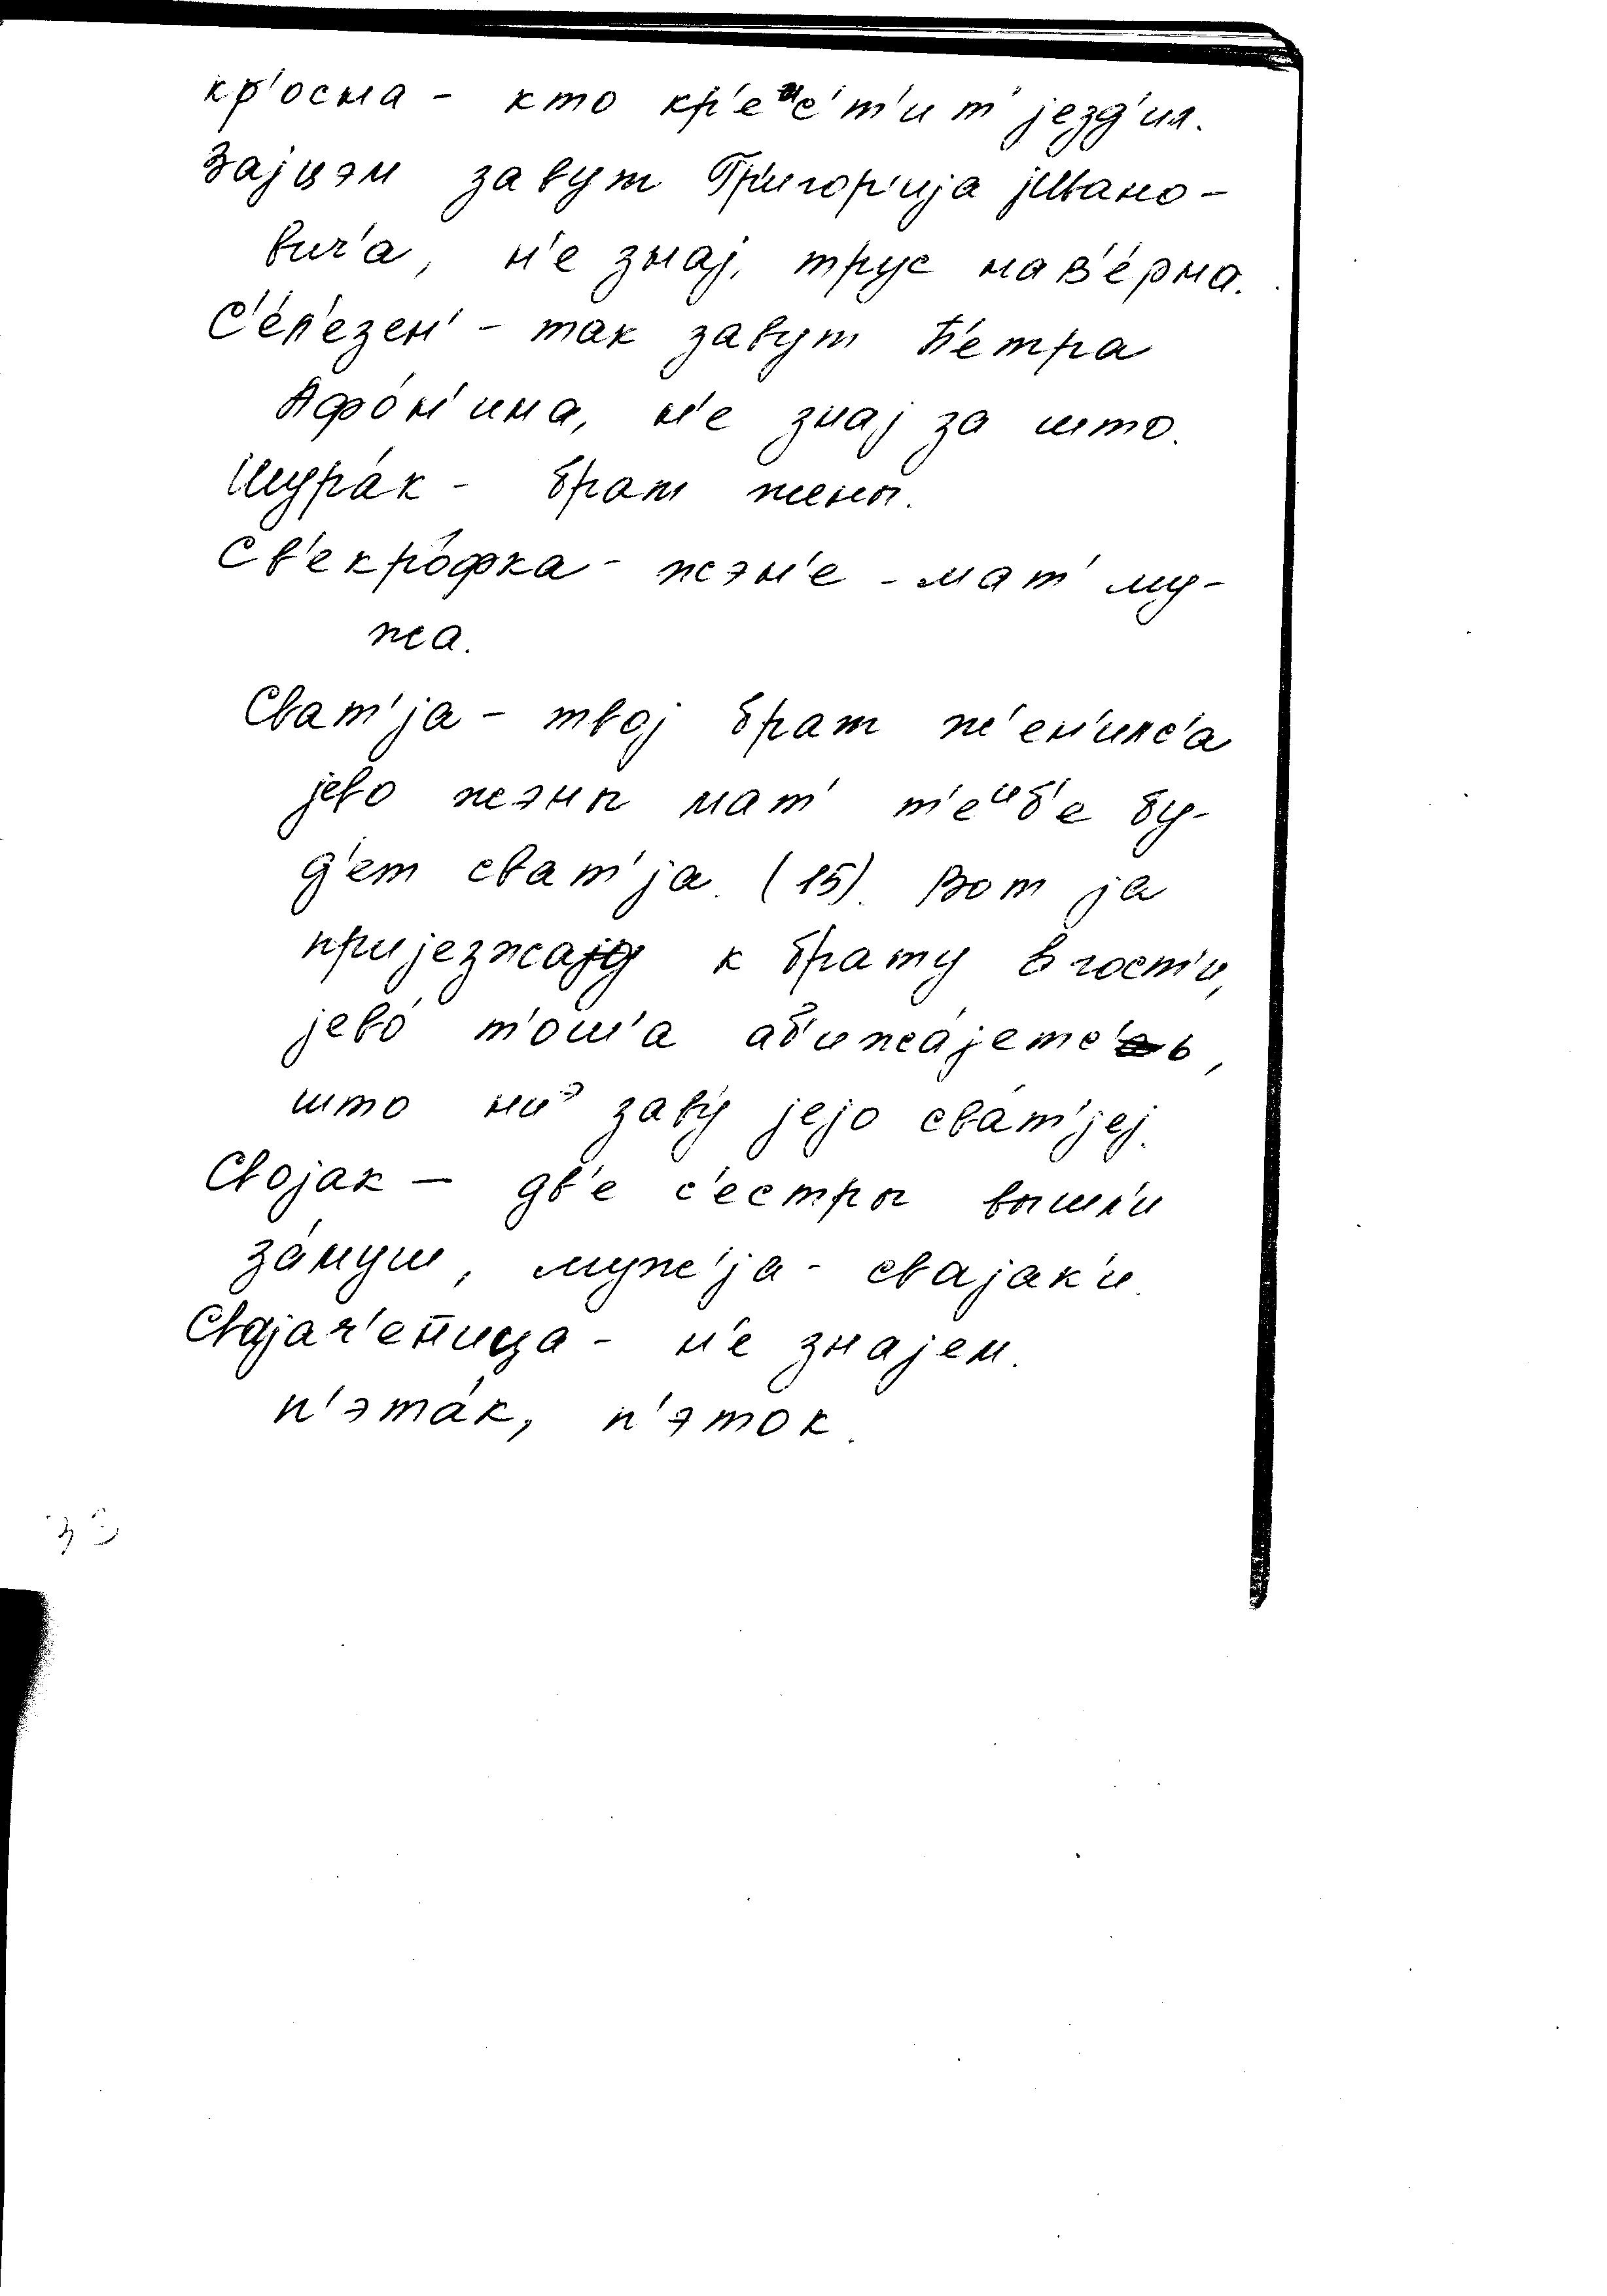 кр'осна - кто кр'еᶦᶜ'т'ит' jезд'ил.
Зајцэм завут Григор'ија jИвано-
вич'а, н'е знај, трус нав'е́рна.
С'е́л'езен' - так завут П'етра
Афо́н'ина, н'е знај за што.
Шура́к - брат жены.
Св'екро́фка - жэн'е - мат' му-
жа.
Сват'ја - твој брат ж'ен'илс'а
јево жэны мат' т'еᶦб'е бу-
д'ет сват'ја. (15). Вот ја
пријезжају к брату в гост'и,
јево́ т'ош'а аб'ижа́јетс'ь,
што ниᵊ заву́ јејо сва́т'јеј.
Својак — дв'е с'естры вышл'и
за́муш, муж'ја - свајак'и.
Свајач'еница - н'е знајем.
п'эта́к, п'эток.